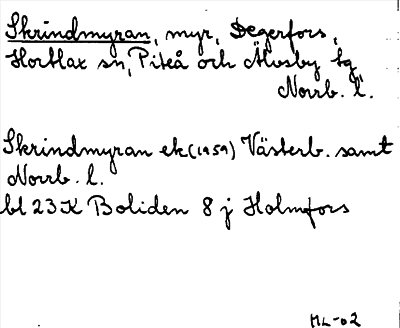 Skrindmyran, myr, Degerfors,
Hortlax sn, Piteå och Älvsby tg
Norrb. l.
Skrindmyran ek (1959) Västerb. samt
Norrb. l.
bl 23 K Boliden 8 j Holmfors
ML-02